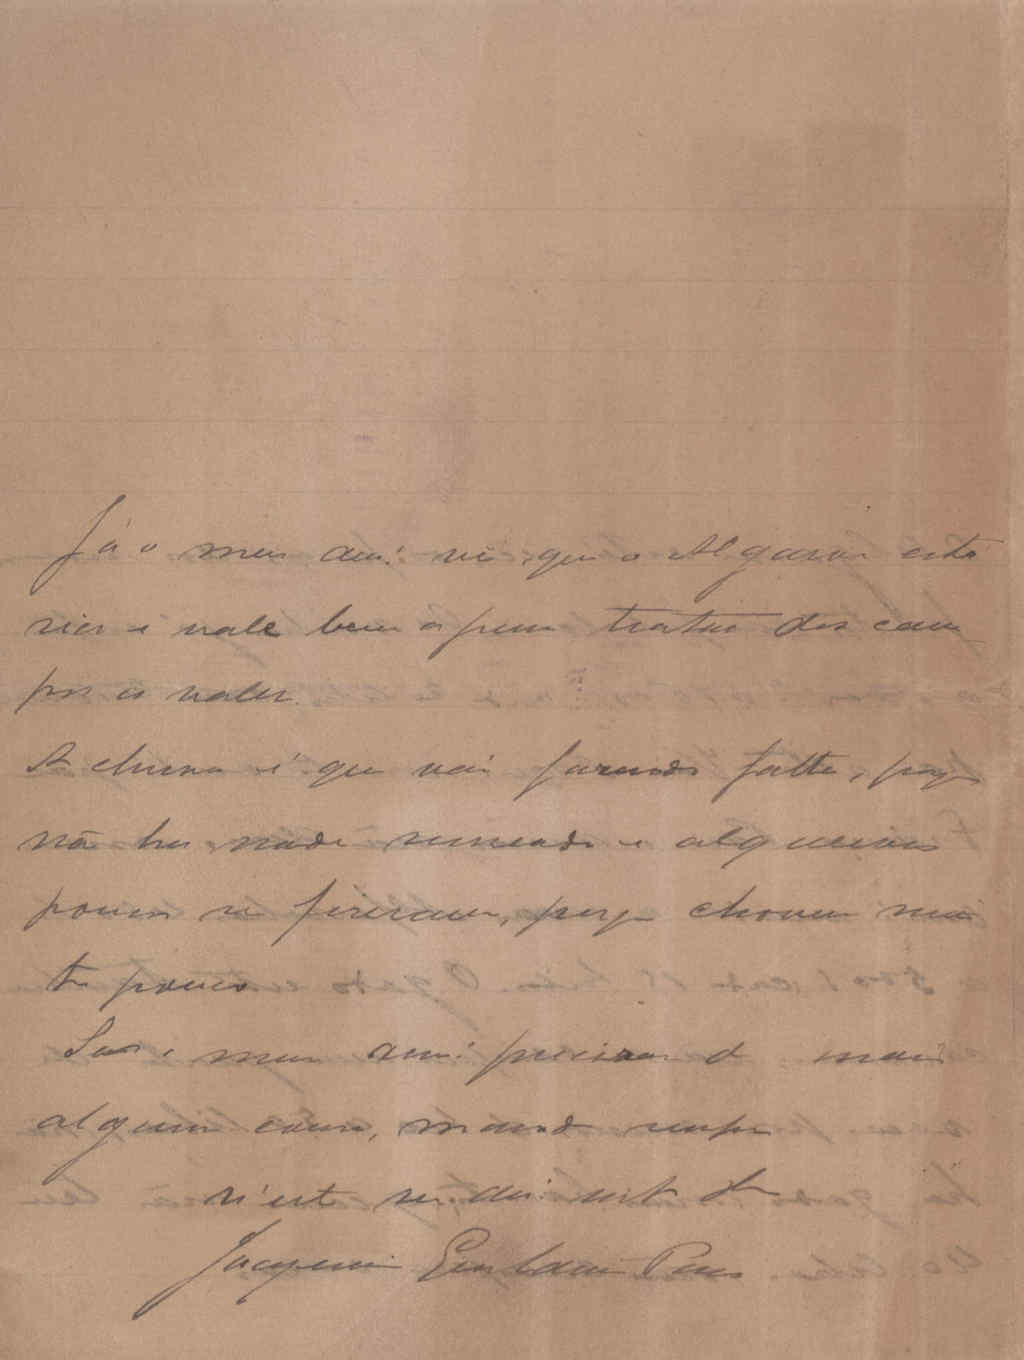 Já o meu am.º vê que o Algarve está
rico e vale bem a pena tratar dos cam
pos os vales.
A chuva é que vai fazendo falta, porq
não ha nada semeado e alqueives
poucos se fizeram, porq choveu mui
to pouco.
Se o meu am.º precisar d mais
alguma cousa, mande sempre
n'este seu am.º
Joaquim Paes